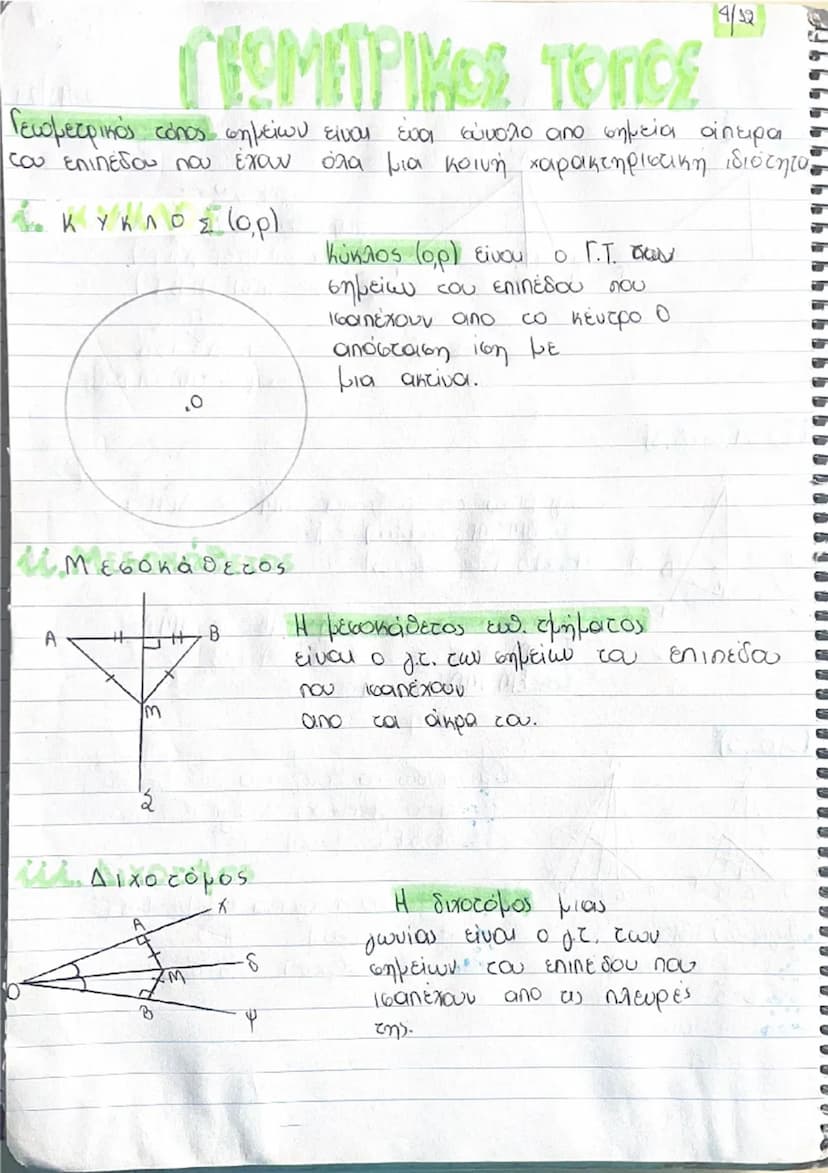 4/12
ΓΕΩΜΕΤΡΙΚΟΣ ΤΟΠΟΣ
Γεωμετρικός τόπος σημείων είναι ένα σύνολο απο σημεία άπειρα
του επιπέδου που έχουν όλα μια κοινή χαρακτηριστική ιδιότητα
i. ΚΥΚΛΟΣ (Ο,ρ)
Κύκλος (Ο,ρ) είναι ο Γ.Τ. των
σημείων του επιπέδου που
ισαπέχουν απο το κέντρο Ο
απόσταση ίση με
μια ακτίνα.
.Ο
ii. Μεσοκάθετος
Α Β
Η μεσοκάθετος ευθ. τμήματος
είναι ο γ.τ. των σημείων του επιπέδου
που ισαπέχουν
Μ
απο τα άκρα του.
iii. Διχοτόμος
Η διχοτόμος μιας
Χ
Α
γωνίας είναι ο γ.τ. των
δ
σημείων του επιπέδου που
Ο Μ
ισαπέχουν απο τις πλευρές
Β ψ
της.